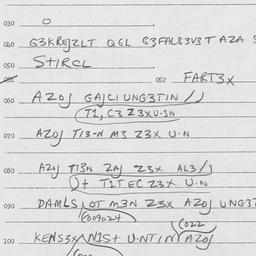 030 O
040 G3KREJZLT QGL G3FALS3V3T AZA
050 S+IRCL
051 052 FART3X
060 AZOJ GAJCIUNG3TIN //
T1, C3 Z3XU·3N
070 AZOJ TI3-N M3 Z3X U·N
080 AZOJ TI3N ZAJ Z3X AL3/)
)+ TITEC Z3X U.N
090 DAMLS LOT M3N Z3X AZOJ UNG3T
(009024
(022
100 KENS3X NIS+ U·NTIN AZOJ